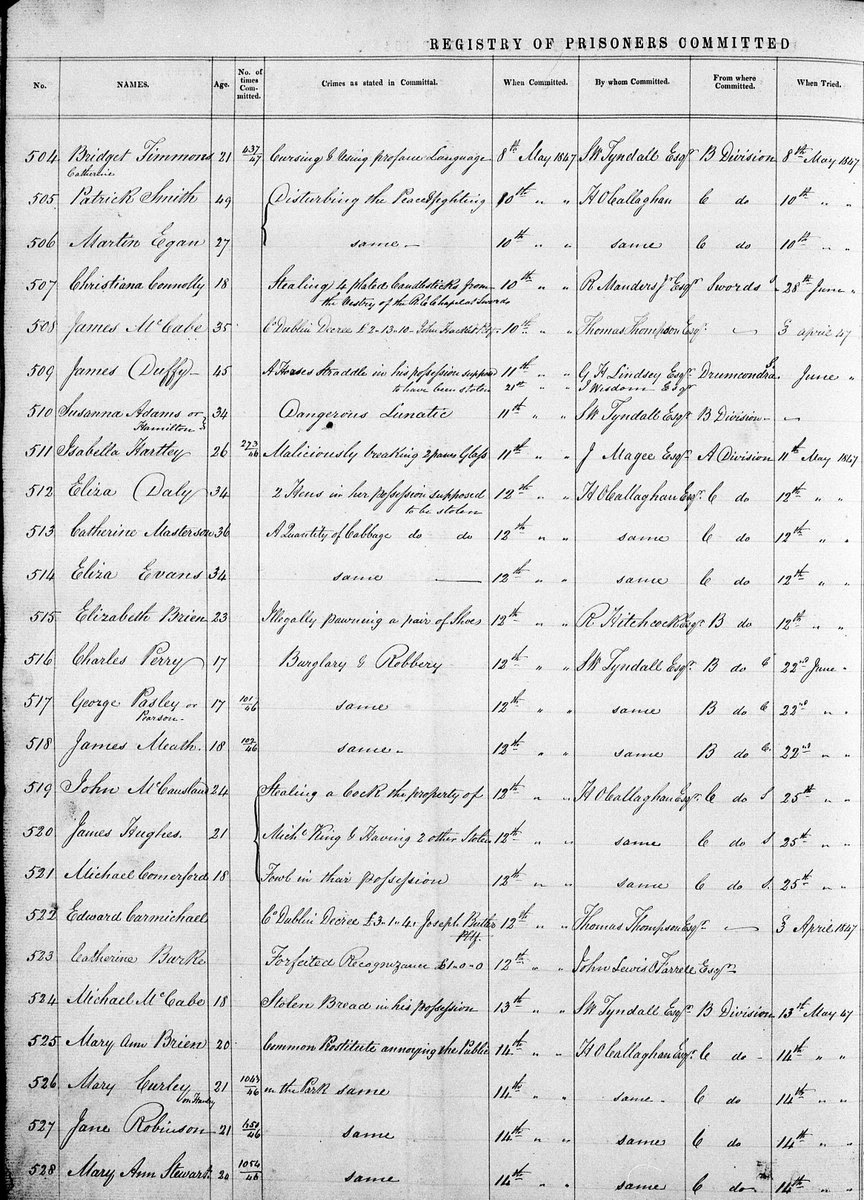 REGISTRY OF PRISONERS COMMITTED
No. NAMES. Age. No. of times Committed. Crimes as stated in Committal. When Committed. By whom Committed. From where Committed. When Tried.
504 Bridget Timmons 21 437/47 Cursing & Using profane Language 8th May 1847 SW Tyndall Esqr B Division 8th May 1847
Catherine
505 Patrick Smith 49 Disturbing the Peace & fighting 10th " " H O Callaghan C do 10th " "
506 Martin Egan 27 same 10th " " same C do 10th " "
507 Christiana Connolly 18 Stealing 4 plated Candlesticks from 10th " " R Manders Jr Esqr Swords S 28th June "
the Vestry of the R.C. Chapel at Swords
508 James McCabe 35 Co Dublin Decree £2-13-10 John 10th " " Thomas Thompson Esqr 3 april 47
509 James Duffy 45 A Horses Straddle in his possession supposed 11th " " G H Lindsey Esqr Drumcondra June "
to have been stolen 21st " " J Wisdom Esqr
510 Susanna Adams or 34 Dangerous Lunatic 11th " " SW Tyndall Esqr B Division
Hamilton
511 Isabella Hartley 26 273/46 Maliciously breaking 2 panes Glass 11th " " J Magee Esqr A Division 11th May 1847
512 Eliza Daly 34 2 Hens in her possession supposed 12th " " H O Callaghan Esqr C do 12th " "
to be stolen
513 Catherine Masterson 36 A Quantity of Cabbage do do 12th " " same C do 12th " "
514 Eliza Evans 34 same 12th " " same C do 12th " "
515 Elizabeth Brien 23 Illegally pawning a pair of Shoes 12th " " R Hitchcock Esqr B do 12th " "
516 Charles Perry 17 Burglary & Robbery 12th " " SW Tyndall Esqr B do C 22nd June "
517 George Pasley or 17 101/46 same 12th " " same B do C 22nd " "
Pearson
518 James Meath 18 102/46 same 12th " " same B do C. 22nd " "
519 John McCausland 24 Stealing a Cock the property of 12th " " H O Callaghan Esqr C do S 25th " "
520 James Hughes. 21 Michl King & Having 2 other Stolen 12th " " same C do S 25th " "
521 Michael Comerford 18 Fowl in their possession 12th " " same C do S. 25th " "
522 Edward Carmichael Co Dublin Decree £3-1-4 Joseph Butler 12th " " Thomas Thompson Esqr 3 April 1847
Pltf.
523 Catherine Burke Forfeited Recognizance £1-0-0 12th " " John Lewis O Farrell Esqr
524 Michael McCabe 18 Stolen Bread in his possession 13th " " SW Tyndall Esqr B Division 13th May 47
525 Mary Ann Brien 20 Common Prostitute annoying the Public 14th " " H O Callaghan Esqr C do 14th " "
526 Mary Curley 21 1043/46 in the Park same 14th " " same C do 14th " "
527 Jane Robinson 21 same 14th " " same C do 14th " "
528 Mary Ann Stewart 20 1054/46 same 14th " " same C do 14th " "